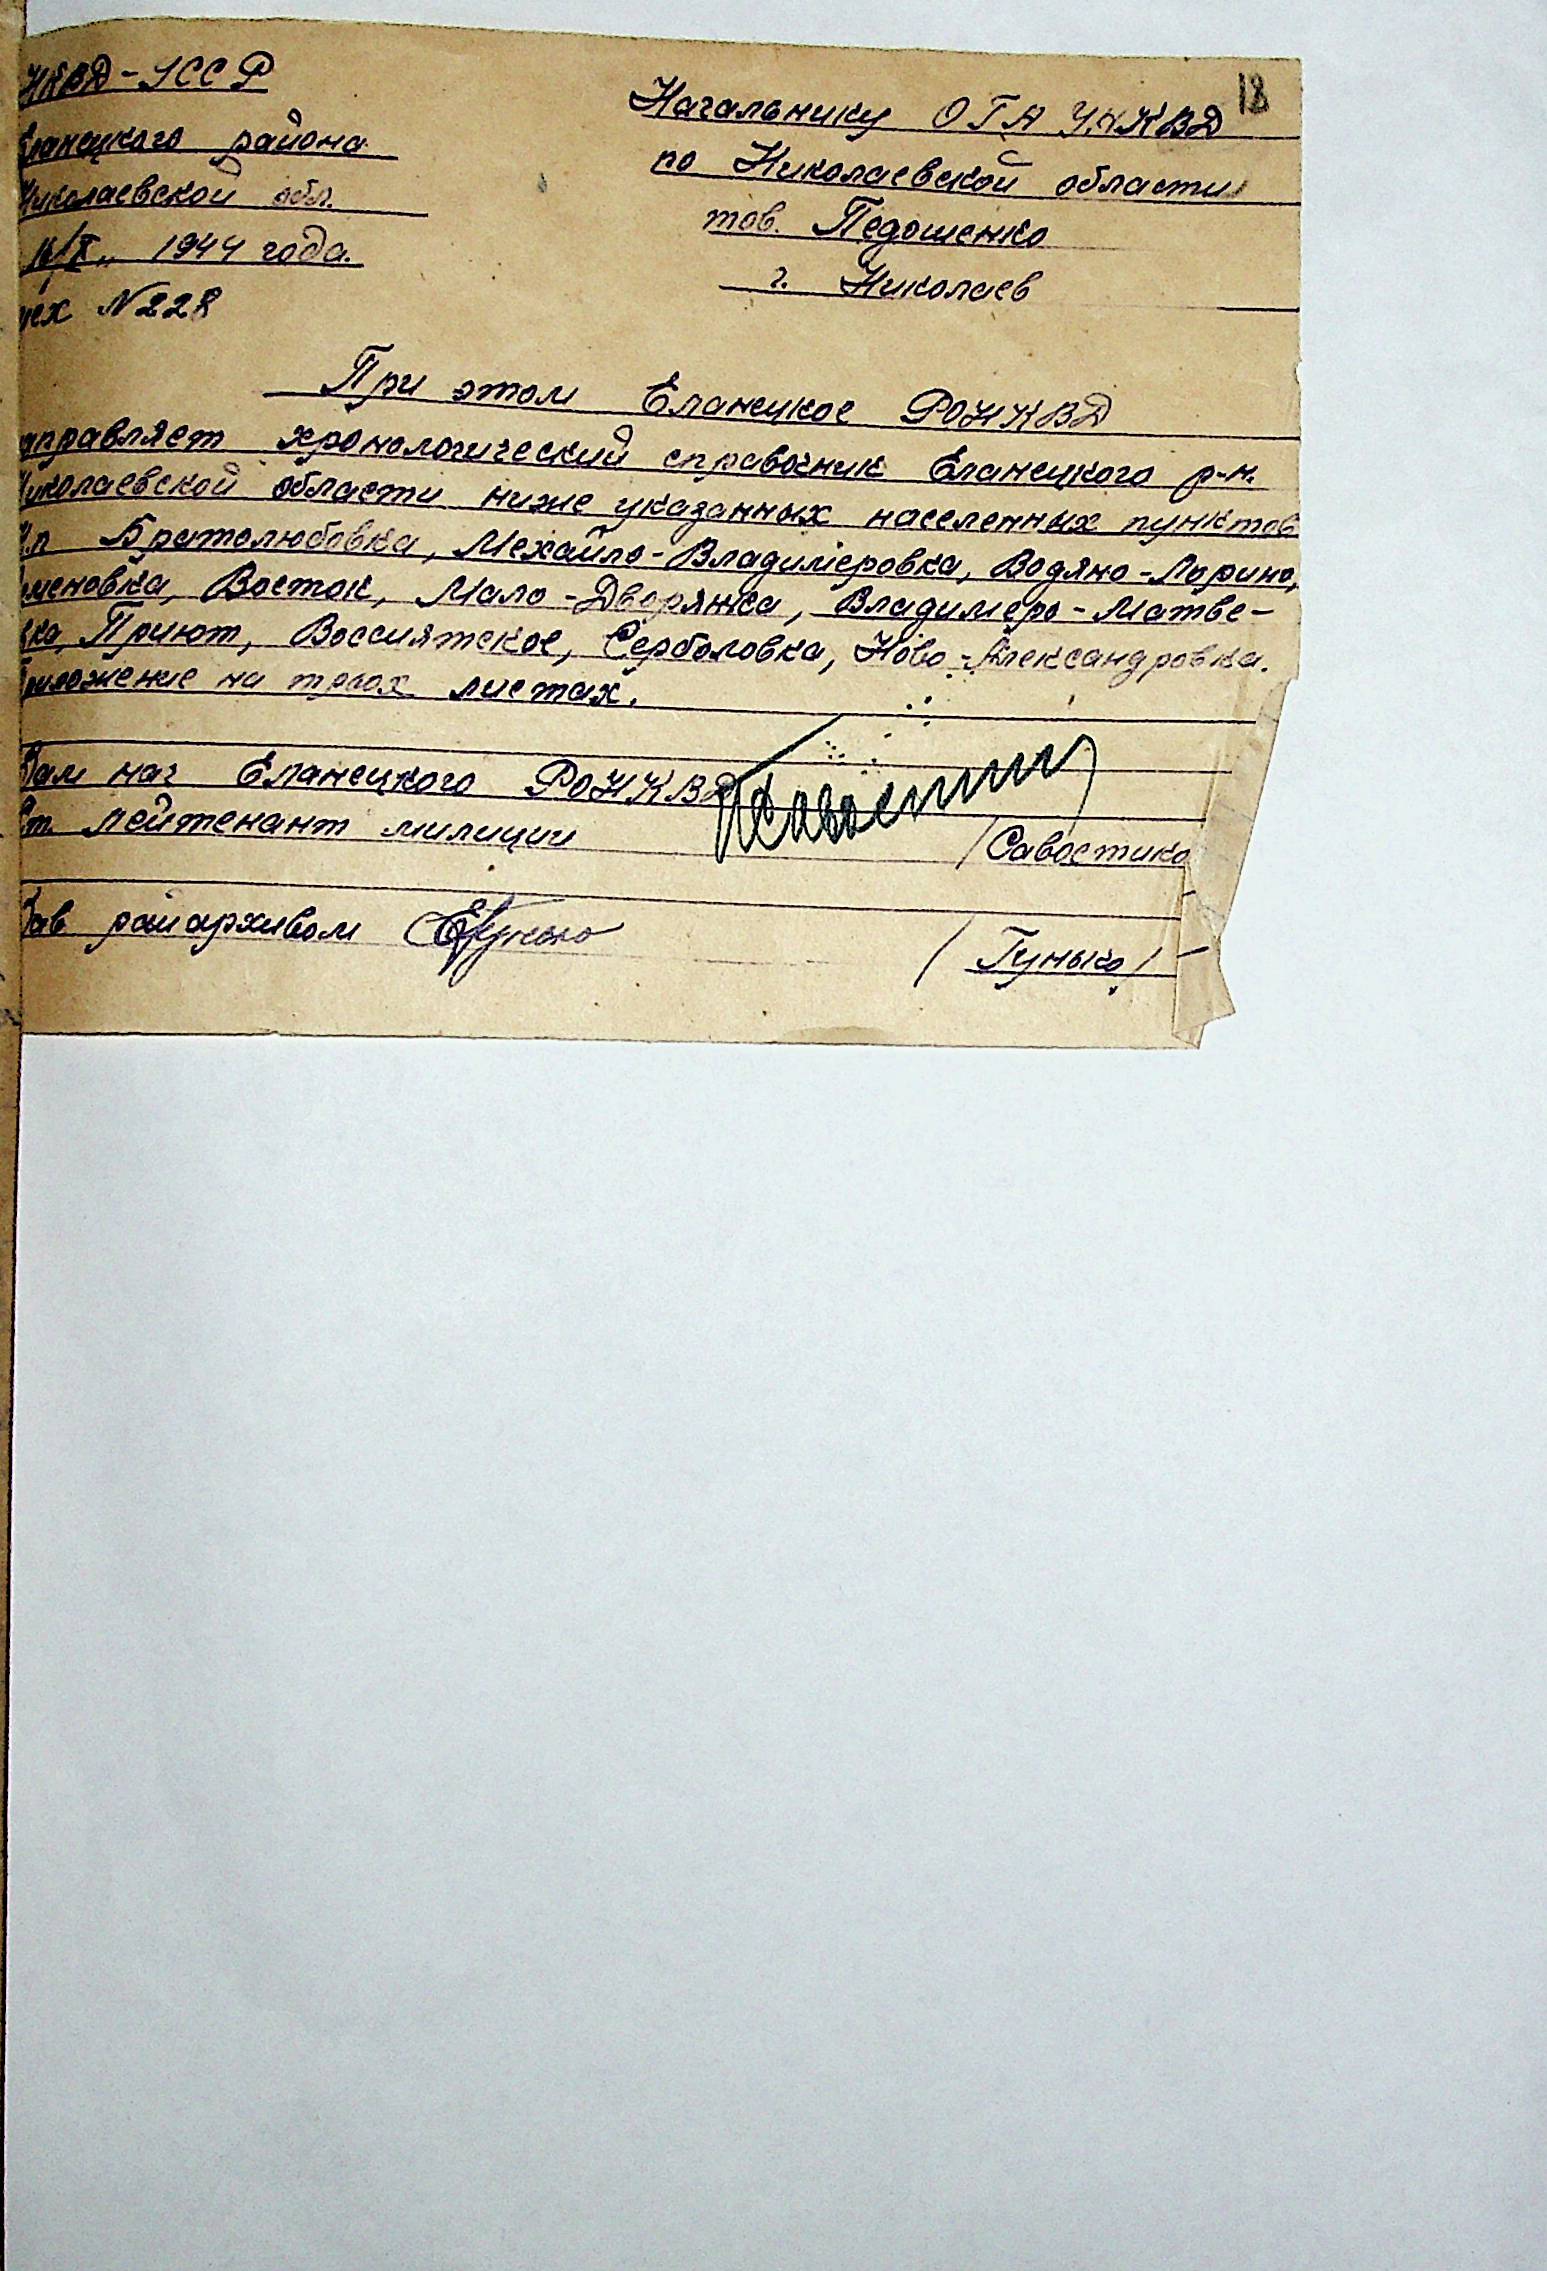 18
НКВД-УССР
Еланецкого района
Николаевской обл.
16/X 1944 года.
исх N 228
Начальнику ОГА УНКВД
по Николаевской области
тов. Педошенко
г. Николаев
При этом Еланецкое РОНКВД
направляет хронологический справочник Еланецкого р-н.
Николаевской области ниже указанных населенных пунктов
Братолюбовка, Мехайло-Владимеровка, Водяно-Лорино,
Восток, Мало-Дворянка, Владимеро-Матве-
вка, Приют, Воссиятское, Серболовка, Ново-Александровка.
Приложение на трёх листах.
Зам нач Еланецкого РОНКВД
Ст. лейтенант милиции /Савостико
Зав райархивом /Гунько/